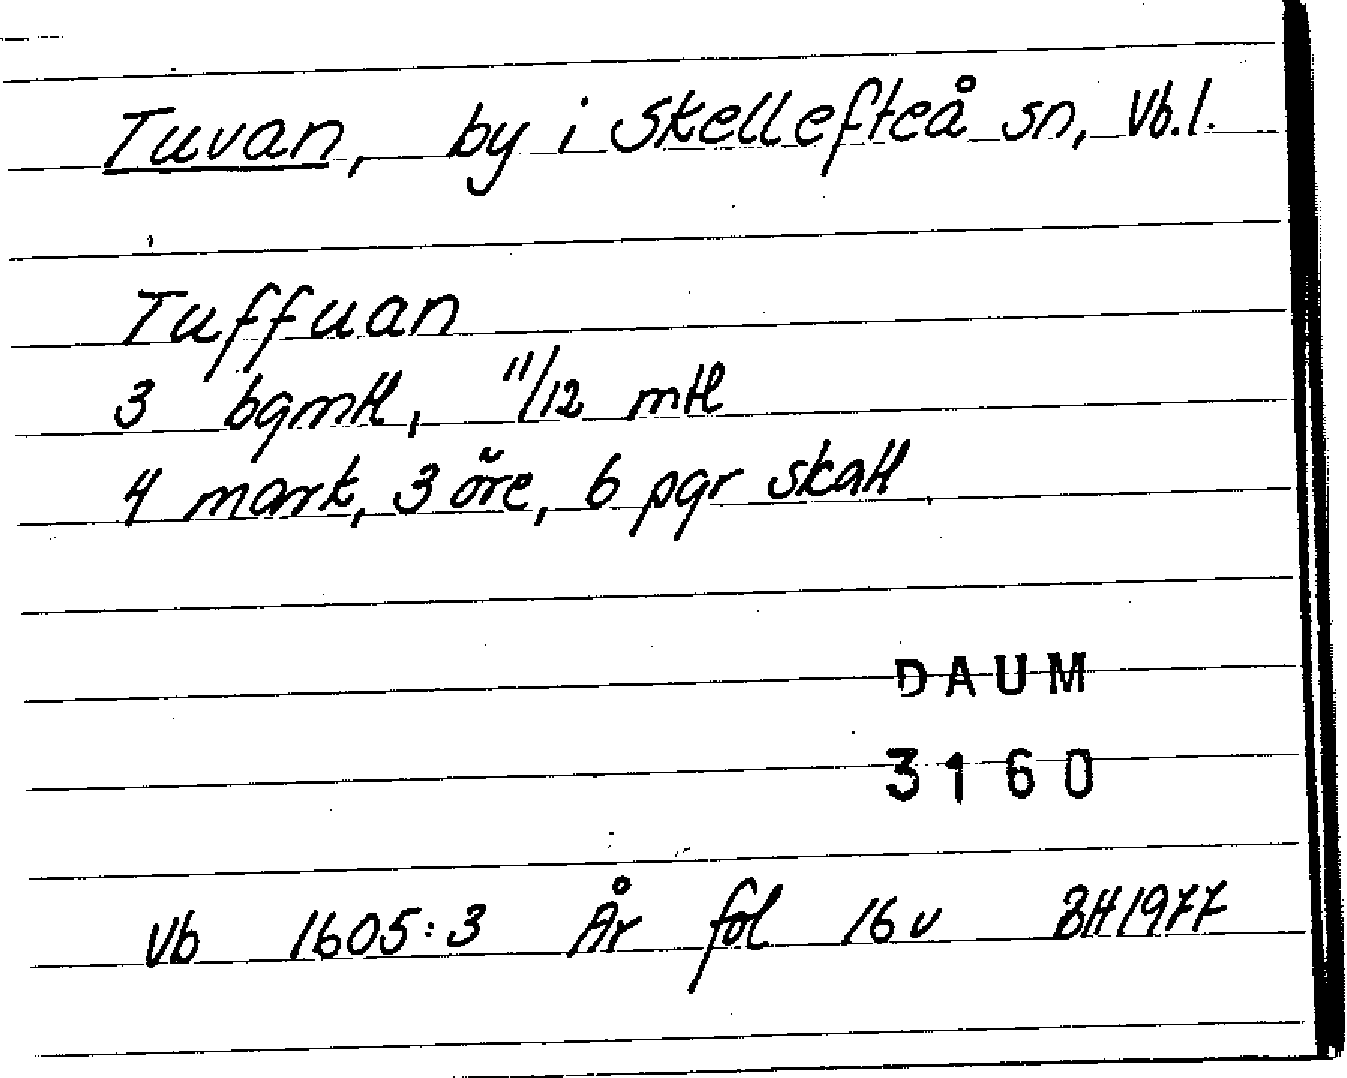 Tuvan, by i Skellefteå sn, Vb.l.
Tuffuan
3 bgmtl, 11/12 mtl
4 mark, 3 öre, 6 pgr skatt
DAUM
3160
Vb 1605:3 År fol 16v BH1977